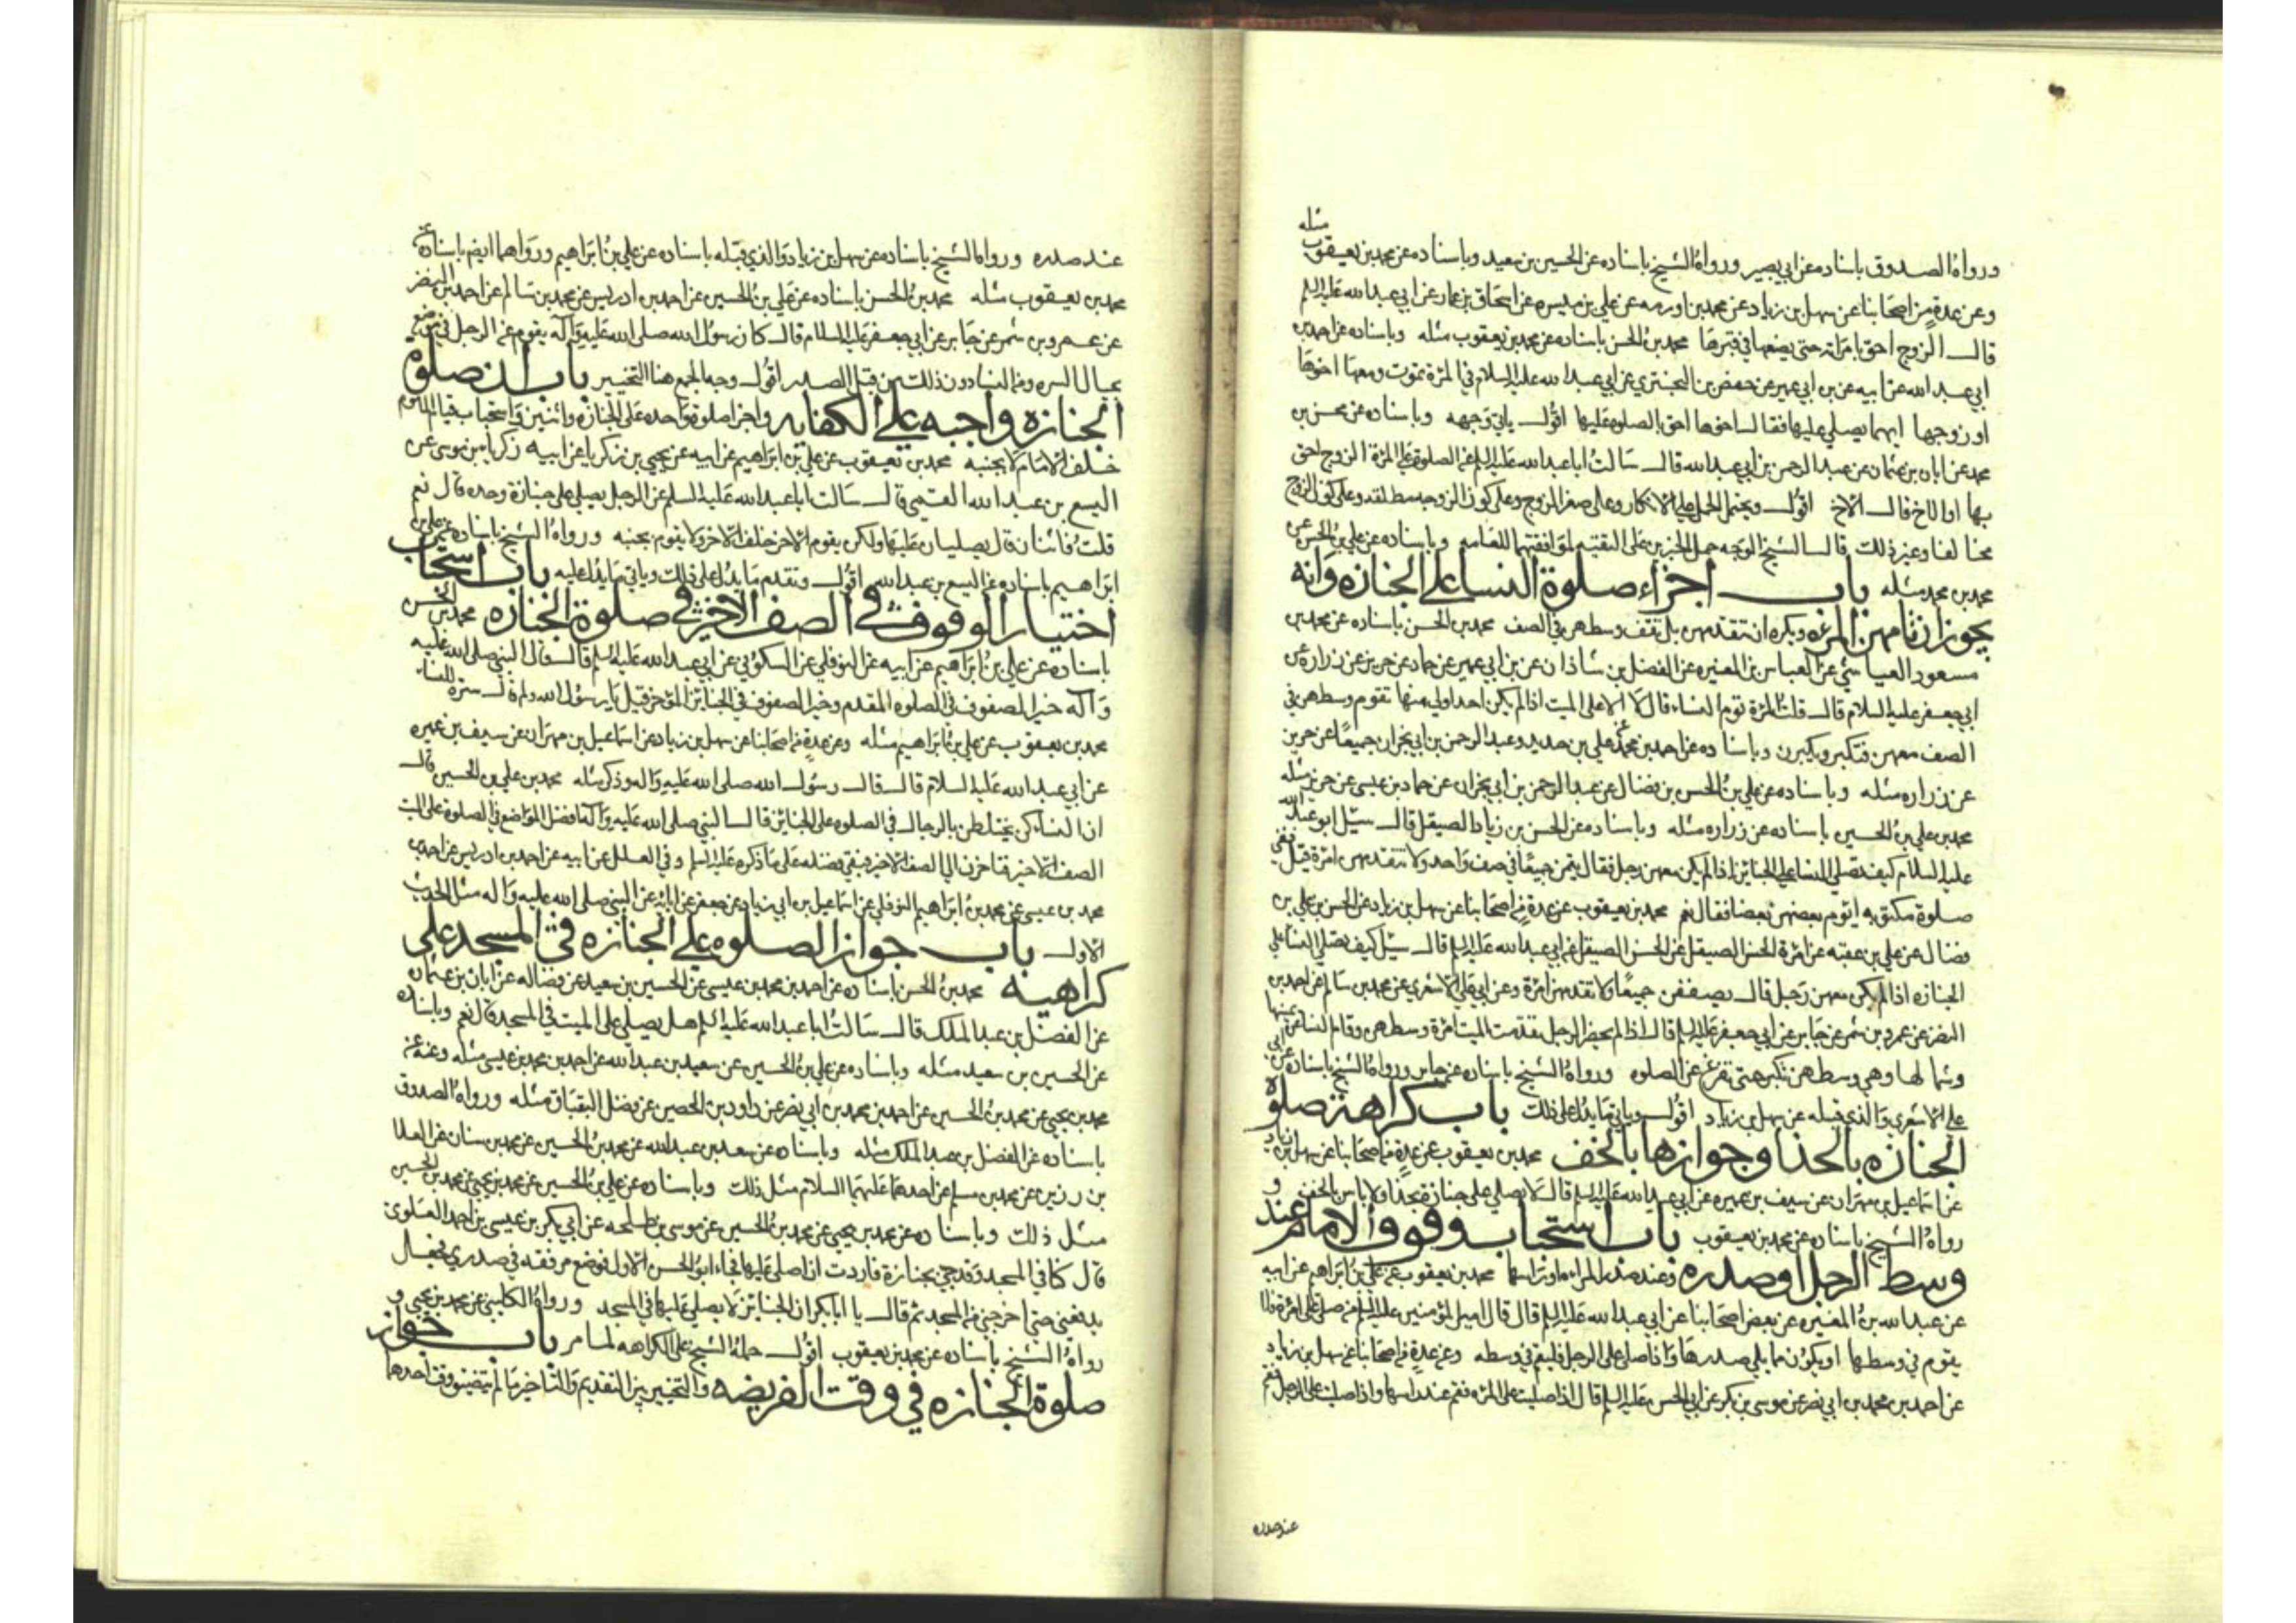 مثله
ورواه الصدوق باسناده عن ابي بصير ورواه الشيخ باسناده عن الحسين بن سعيد وباسناده عن محمد بن يعقوب
وعن عدة من اصحابنا عن سهل بن زياد عن محمد بن اورمه عن علي بن ميسره عن اسحاق بن عمار عن ابي عبدالله عليه السلم
قال الزوج احق بامراته حتى يضعها في قبرها محمد بن الحسن باسناده عن محمد بن يعقوب مثله وباسناده عن احمد بن
ابي عبدالله عن ابيه عن بن ابي عمير عن حفص بن البختري عن ابي عبدالله عليه السلام في المرئة تموت ومعها اخوها
او زوجها ايهما يصلي عليها فقال اخوها احق بالصلوه عليها اقول ياتي وجهه وباسناده عن محسن بن
محمد عن ابان بن عثمان عن عبدالرحمن بن ابي عبدالله قال سالت اباعبدالله عليه السلم عن الصلوة على المرئة الزوج احق
بها او الاخ قال الاخ اقول ويحتمل الحمل على الانكار وعلى صغر الزوج وعلى كون الزوجه سطلقه وعلى كون الزوج
مخالفا وغير ذلك قال الشيخ الوجه حمل الخبرين على التقيه لموافقتهما للعامه وباسناده عن علي بن الحسن عن
محمد بن محمد مثله باب اجزاء صلوة النسا على الجنازه وانه
يجوز ان تامهن المرئه ويكره ان تتقدمهن بل تقف وسطهن في الصف محمد بن الحسن باسناده عن محمد بن
مسعود العياشي عن العباس بن المغيره عن الفضل بن شاذان عن بن ابي عمير عن حماد عن حريز عن زراره عن
ابي جعفر عليه السلام قال قلت المرئة تؤم النساء قال لا الا على الميت اذا لم يكن احد اولي منها تقوم وسطهن في
الصف معهن فتكبر ويكبرن وباسناده عن احمد بن محمد عن علي بن حديد وعبدالرحمن بن ابي نجران جميعا عن حريز
عن زراره مثله وباسناده عن علي بن الحسن بن فضال عن عبدالرحمن بن ابي نجران عن حماد بن عيسى عن حريز مثله
محمد بن علي بن الحسين باسناده عن زراره مثله وباسناده عن الحسن بن زياد الصيقل قال سئل ابو عبدالله
عليه السلام كيف تصلي النسا على الجنائز اذا لم يكن معهن رجل فقال يقمن جميعا في صف واحد ولا تتقدمهن امرئة قيل ففي
صلوة مكتوبه ايؤم بعضهن بعضا فقال نعم محمد بن يعقوب عن عدة من اصحابنا عن سهل بن زياد عن الحسن بن علي بن
فضال عن علي بن عقبه عن امرئة الحسن الصيقل عن الحسن الصيقل عن ابي عبدالله عليه السلم قال سئل كيف تصلي النسا على
الجنازه اذا لم يكن معهن رجل قال يصففن جميعا ولا تتقدمهن امرئة وعن ابي علي الاشعري عن محمد بن سالم عن احمد بن
النضر عن عمرو بن شمر عن جابر عن ابي جعفر عليه السلم قال اذا لم يحضر الرجل تقدمت الميت امرئة وسطهن وقام النسا عن يمينها
وشمالها وهي وسطهن تكبر حتى تفرغ عن الصلوه ورواه الشيخ باسناده عن جابر ورواه الشيخ باسناده عن ابي
علي الاشعري والذي قبله عن سهل بن زياد اقول وياتي ما يدل على ذلك باب كراهة صلوة
الجنازه بالحذا وجوازها بالخف محمد بن يعقوب عن عدة من اصحابنا عن سهل بن زياد
عن اسماعيل بن مهران عن سيف بن عميره عن ابي عبدالله عليه السلم قال لا يصلي على جنازة بحذا ولا باس بالخف و
رواه الشيخ باسناده عن محمد بن يعقوب باب استحباب وقوف الامام عند
وسط الرجل او صدره وعند صدر المراه او راسها محمد بن يعقوب عن علي بن ابراهيم عن ابيه
عن عبدالله بن المغيره عن بعض اصحابنا عن ابي عبدالله عليه السلم قال قال امير المؤمنين عليه السلم من صلى على امرئة فلا
يقوم في وسطها او يكون مما يلي صدرها واذا صلى على الرجل فليقم في وسطه وعن عدة من اصحابنا عن سهل بن زياد
عن احمد بن محمد بن ابي نصر عن موسى بن بكر عن ابي الحسن عليه السلم قال اذا صليت على المرئه فقم عند راسها واذا صليت على الرجل فقم
عند صدره
عند صدره ورواه الشيخ باسناده عن سهل بن زياد والذي قبله باسناده عن علي بن ابراهيم ورواهما ايضا باسناده عن
محمد بن يعقوب مثله محمد بن الحسن باسناده عن علي بن الحسين عن احمد بن ادريس عن محمد بن سالم عن احمد بن النضر
عن عمرو بن شمر عن جابر عن ابي جعفر عليه السلام قال كان رسول الله صلى الله عليه وآله يقوم من الرجل في موضع
بحيال السره ومن النسا دون ذلك من قبل الصدر اقول وجه الجمع هنا التخيير باب ان صلوة
الجنازه واجبه على الكفايه واجزا صلوة واحده على الجنازه واثنين واستحباب قيام المأموم
خلف الامام لا بجنبه محمد بن يعقوب عن علي بن ابراهيم عن ابيه عن يحيى بن زكريا عن ابيه زكريا بن موسى عن
اليسع بن عبدالله القمي قال سالت اباعبدالله عليه السلم عن الرجل يصلي على جنازة وحده قال نعم
قلت فاثنان قال يصليان عليها ولكن يقوم الاخر خلف الاخر ولا يقوم بجنبه ورواه الشيخ باسناده عن علي بن
ابراهيم باسناده عن اليسع بن عبدالله اقول وتقدم ما يدل على ذلك وياتي ما يدل عليه باب استحباب
اختيار الوقوف في الصف الاخير في صلوة الجنازه محمد بن الحسن
باسناده عن علي بن ابراهيم عن ابيه عن النوفلي عن السكوني عن ابي عبدالله عليه السلم قال قال النبي صلى الله عليه
وآله خير الصفوف في الصلوه المقدم وخير الصفوف في الجنائز المؤخر قيل يا رسول الله ولم قال سترة للنساء
محمد بن يعقوب عن علي بن ابراهيم مثله وعن عدة من اصحابنا عن سهل بن زياد عن اسماعيل بن مهران عن سيف بن عميره
عن ابي عبدالله عليه السلام قال قال رسول الله صلى الله عليه واله وذكر مثله محمد بن علي بن الحسين قال
ان النساء كن يختلطن بالرجال في الصلوه على الجنائز فقال النبي صلى الله عليه وآله افضل المواضع في الصلوة على الميت
الصف الاخير فتاخرن الى الصف الاخير فبقي فضله على ما ذكره عليه السلم وفي العلل عن ابيه عن احمد بن ادريس عن احمد بن
محمد بن عيسى عن محمد بن ابراهيم النوفلي عن اسماعيل بن ابي زياد عن جعفر عن ابائه عن النبي صلى الله عليه واله مثل الحديث
الاول باب جواز الصلوه على الجنازه في المسجد على
كراهيه محمد بن الحسن باسناده عن احمد بن محمد بن عيسى عن الحسين بن سعيد عن فضاله عن ابان بن عثمان
عن الفضل بن عبدالملك قال سالت اباعبدالله عليه السلم هل يصلي على الميت في المسجد قال نعم وباسناده
عن الحسين بن سعيد مثله وباسناده عن علي بن الحسين عن سعيد بن عبدالله عن احمد بن محمد بن عيسى مثله وعنه عن
محمد بن يحيى عن محمد بن الحسين عن احمد بن محمد بن ابي نصر عن داود بن الحصين عن فضل البقباق مثله ورواه الصدوق
باسناده عن الفضل بن عبدالملك مثله وباسناده عن سعد بن عبدالله عن محمد بن الحسين عن محمد بن سنان عن العلا
بن رزين عن محمد بن مسلم عن احدهما عليهما السلام مثل ذلك وباسناده عن علي بن الحسين عن محمد بن يحيى عن محمد بن الحسين
مثل ذلك وباسناده عن محمد بن يحيى عن محمد بن الحسين عن موسى بن طلحه عن ابي بكر بن عيسى بن احمد العلوي
قال كنا في المسجد وقد جيئ بجنازة فاردت ان اصلي عليها فجاء ابو الحسن الاول فوضع مرفقه في صدري فجعل
يدفعني حتى اخرجني من المسجد ثم قال يا ابابكر ان الجنائز لا يصلي عليها في المسجد ورواه الكليني عن محمد بن يحيى و
رواه الشيخ باسناده عن محمد بن يعقوب اقول حمله الشيخ على الكراهه لما مر باب جواز
صلوة الجنازه في وقت الفريضه والتخيير بين التقديم والتاخير ما لم يتضيق وقت احدهما